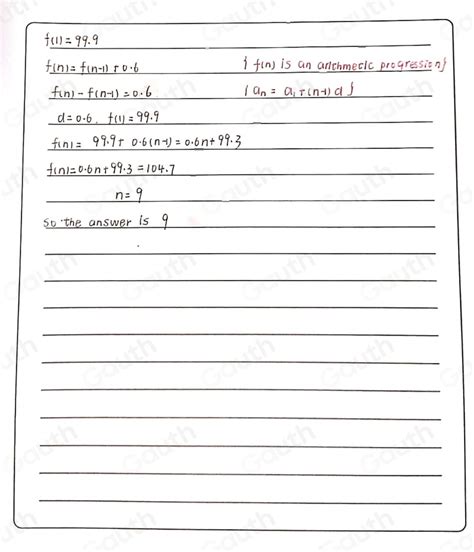 f(1) = 99.9
f(n) = f(n-1) + 0.6 { f(n) is an arithmetic progression }
f(n) - f(n-1) = 0.6 { aₙ = a₁ + (n-1) d }
d = 0.6, f(1) = 99.9
f(n) = 99.9 + 0.6(n-1) = 0.6n + 99.3
f(n) = 0.6n + 99.3 = 104.7
n = 9
So the answer is 9
Gauth